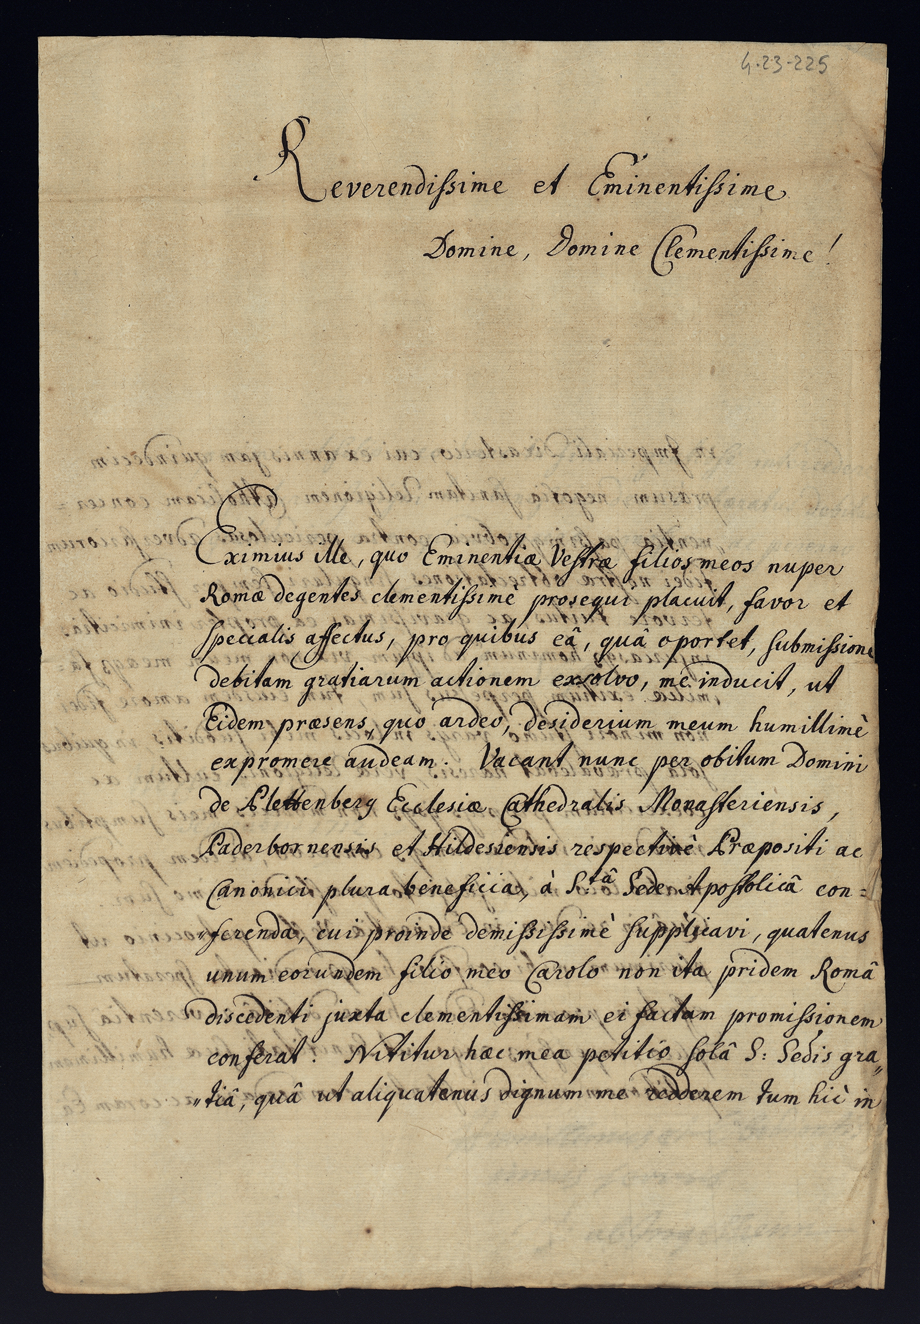 4.23-225
Reverendissime et Eminentissime
Domine, Domine Clementissime!
Eximius ille, quo Eminentiæ Vestræ filios meos nuper
Romæ degentes clementissimè prosequi placuit, favor et
specialis affectus, pro quibus eâ, quâ oportet, submissione
debitam gratiarum actionem exsolvo, me inducit, ut
Eidem præsens, quo ardeo, desiderium meum humillimè
expromere audeam. Vacant nunc per obitum Domini
de Plettenberg Ecclesiæ Cathedralis Monasteriensis,
Paderbornensis et Hildesiensis respectivè Præpositi ac
Canonici plura beneficia, à S.tâ Sede Apostolicâ con=
"ferenda, cui proindè demississimè supplicavi, quatenus
unum eorundem filio meo Carolo non ita pridem Româ
discedenti juxta clementissimam ei factam promissionem
conferat. Nititur hæc mea petitio solâ S: Sedis gra"
"tiâ, quâ ut aliquatenus dignum me redderem tum hìc in